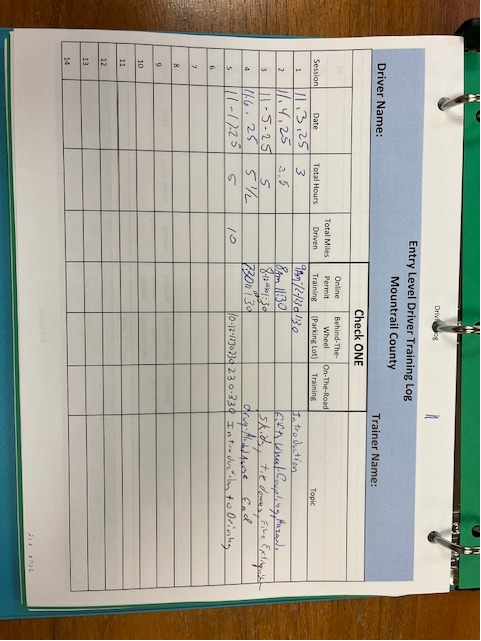 Entry Level Driver Training Log
Mountrail County
Driver Name: Trainer Name:
Check ONE
Session Date Total Hours Total Miles Driven Online Permit Training Behind-The-Wheel (Parking Lot) On-The-Road Training Topic
1 11.3.25 3 Introduction
2 11.4.25 2.5 8Am 11:30 Fifth Wheel Coupling, Hazards
3 11-5-25 5 Skids, tie downs, Fire
4 11.6.25 5 1/2 End
5 11-17-25 5 10 230-330 Introduction to Driving
6
7
8
9
10
11
12
13
14